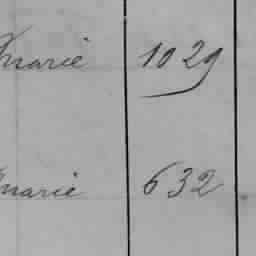 Marie 1029
Marie 632